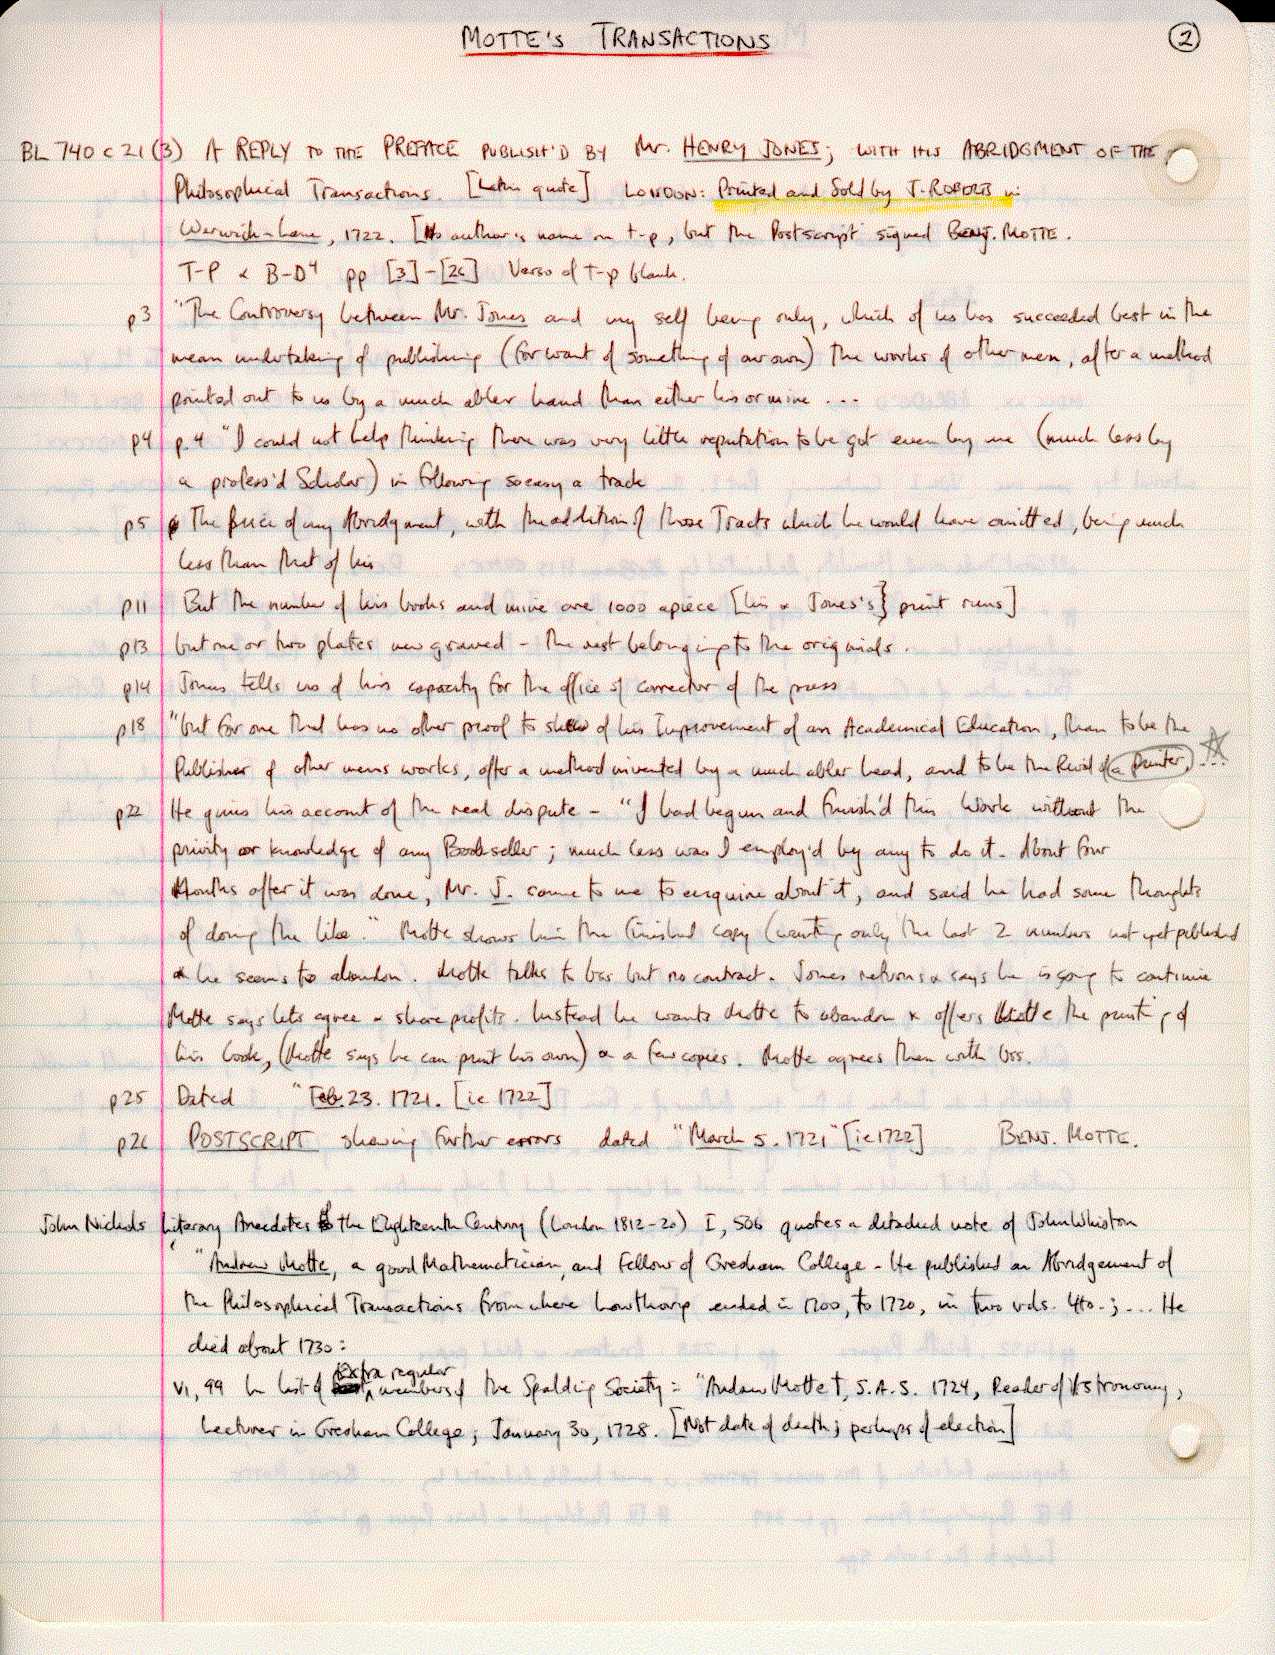 MOTTE'S TRANSACTIONS
2
BL 740 c 21 (3) A REPLY TO THE PREFACE PUBLISH'D BY Mr. HENRY JONES; WITH HIS ABRIDGMENT OF THE
Philosophical Transactions. [Latin quote] LONDON: Printed and Sold by J. ROBERTS in
Warwick-Lane, 1722. [No author's name on t-p, but the Postscript signed BENJ. MOTTE.
T-P & B-D4 pp [3]-[26] Verso of t-p blank.
p3 "The Controversy between Mr. Jones and my self being only, which of us has succeeded best in the
mean undertaking of publishing (for want of something of our own) the works of other men, after a method
pointed out to us by a much abler hand than either his or mine ...
p4 p.4 "I could not help thinking there was very little reputation to be got even by me (much less by
a profess'd Scholar) in following so easy a track
p5 The Price of my Abridgment, with the addition of those Tracts which he would have omitted, being much
less than that of his
p11 But the number of his books and mine are 1000 apiece [his & Jones's} print runs]
p13 but one or two plates new graved - the rest belonging to the originals.
p14 Jones tells us of his capacity for the office of corrector of the press
p18 "but for one that has no other proof to shew of his Improvement of an Academical Education, than to be the
Publisher of other mens works, after a method invented by a much abler head, and to be the Rival of a printer, ...
p22 He gives his account of the real dispute - "I had begun and finish'd this Work without the
privity or knowledge of any Bookseller; much less was I employ'd by any to do it. About four
Months after it was done, Mr. J. came to me to enquire about it, and said he had some thoughts
of doing the like." Motte shows him the finished copy (wanting only the last 2 numbers not yet published
& he seems to abandon. Motte talks to bss but no contract. Jones returns & says he is going to continue
Motte says lets agree & share profits. Instead he wants Motte to abandon & offers Motte the printing of
his book, (Motte says he can print his own) & a few copies. Motte agrees then with bss.
p25 Dated "Feb. 23. 1721. [ie 1722]
p26 POSTSCRIPT showing further errors dated "March 5. 1721" [ie 1722] BENJ. MOTTE.
John Nichols Literary Anecdotes of the Eighteenth Century (London 1812-20) I, 506 quotes a detached note of John Whiston
"Andrew Motte, a good Mathematician, and Fellow of Gresham College - He published an Abridgement of
the Philosophical Transactions from where Lowthorp ended in 1700, to 1720, in two vols. 4to.; ... He
died about 1730:
extra regular
VI, 99 In list of members of the Spalding Society: "Andrew Motte †, S.A.S. 1724, Reader of Astronomy,
Lecturer in Gresham College; January 30, 1728. [Not date of death; perhaps of election]